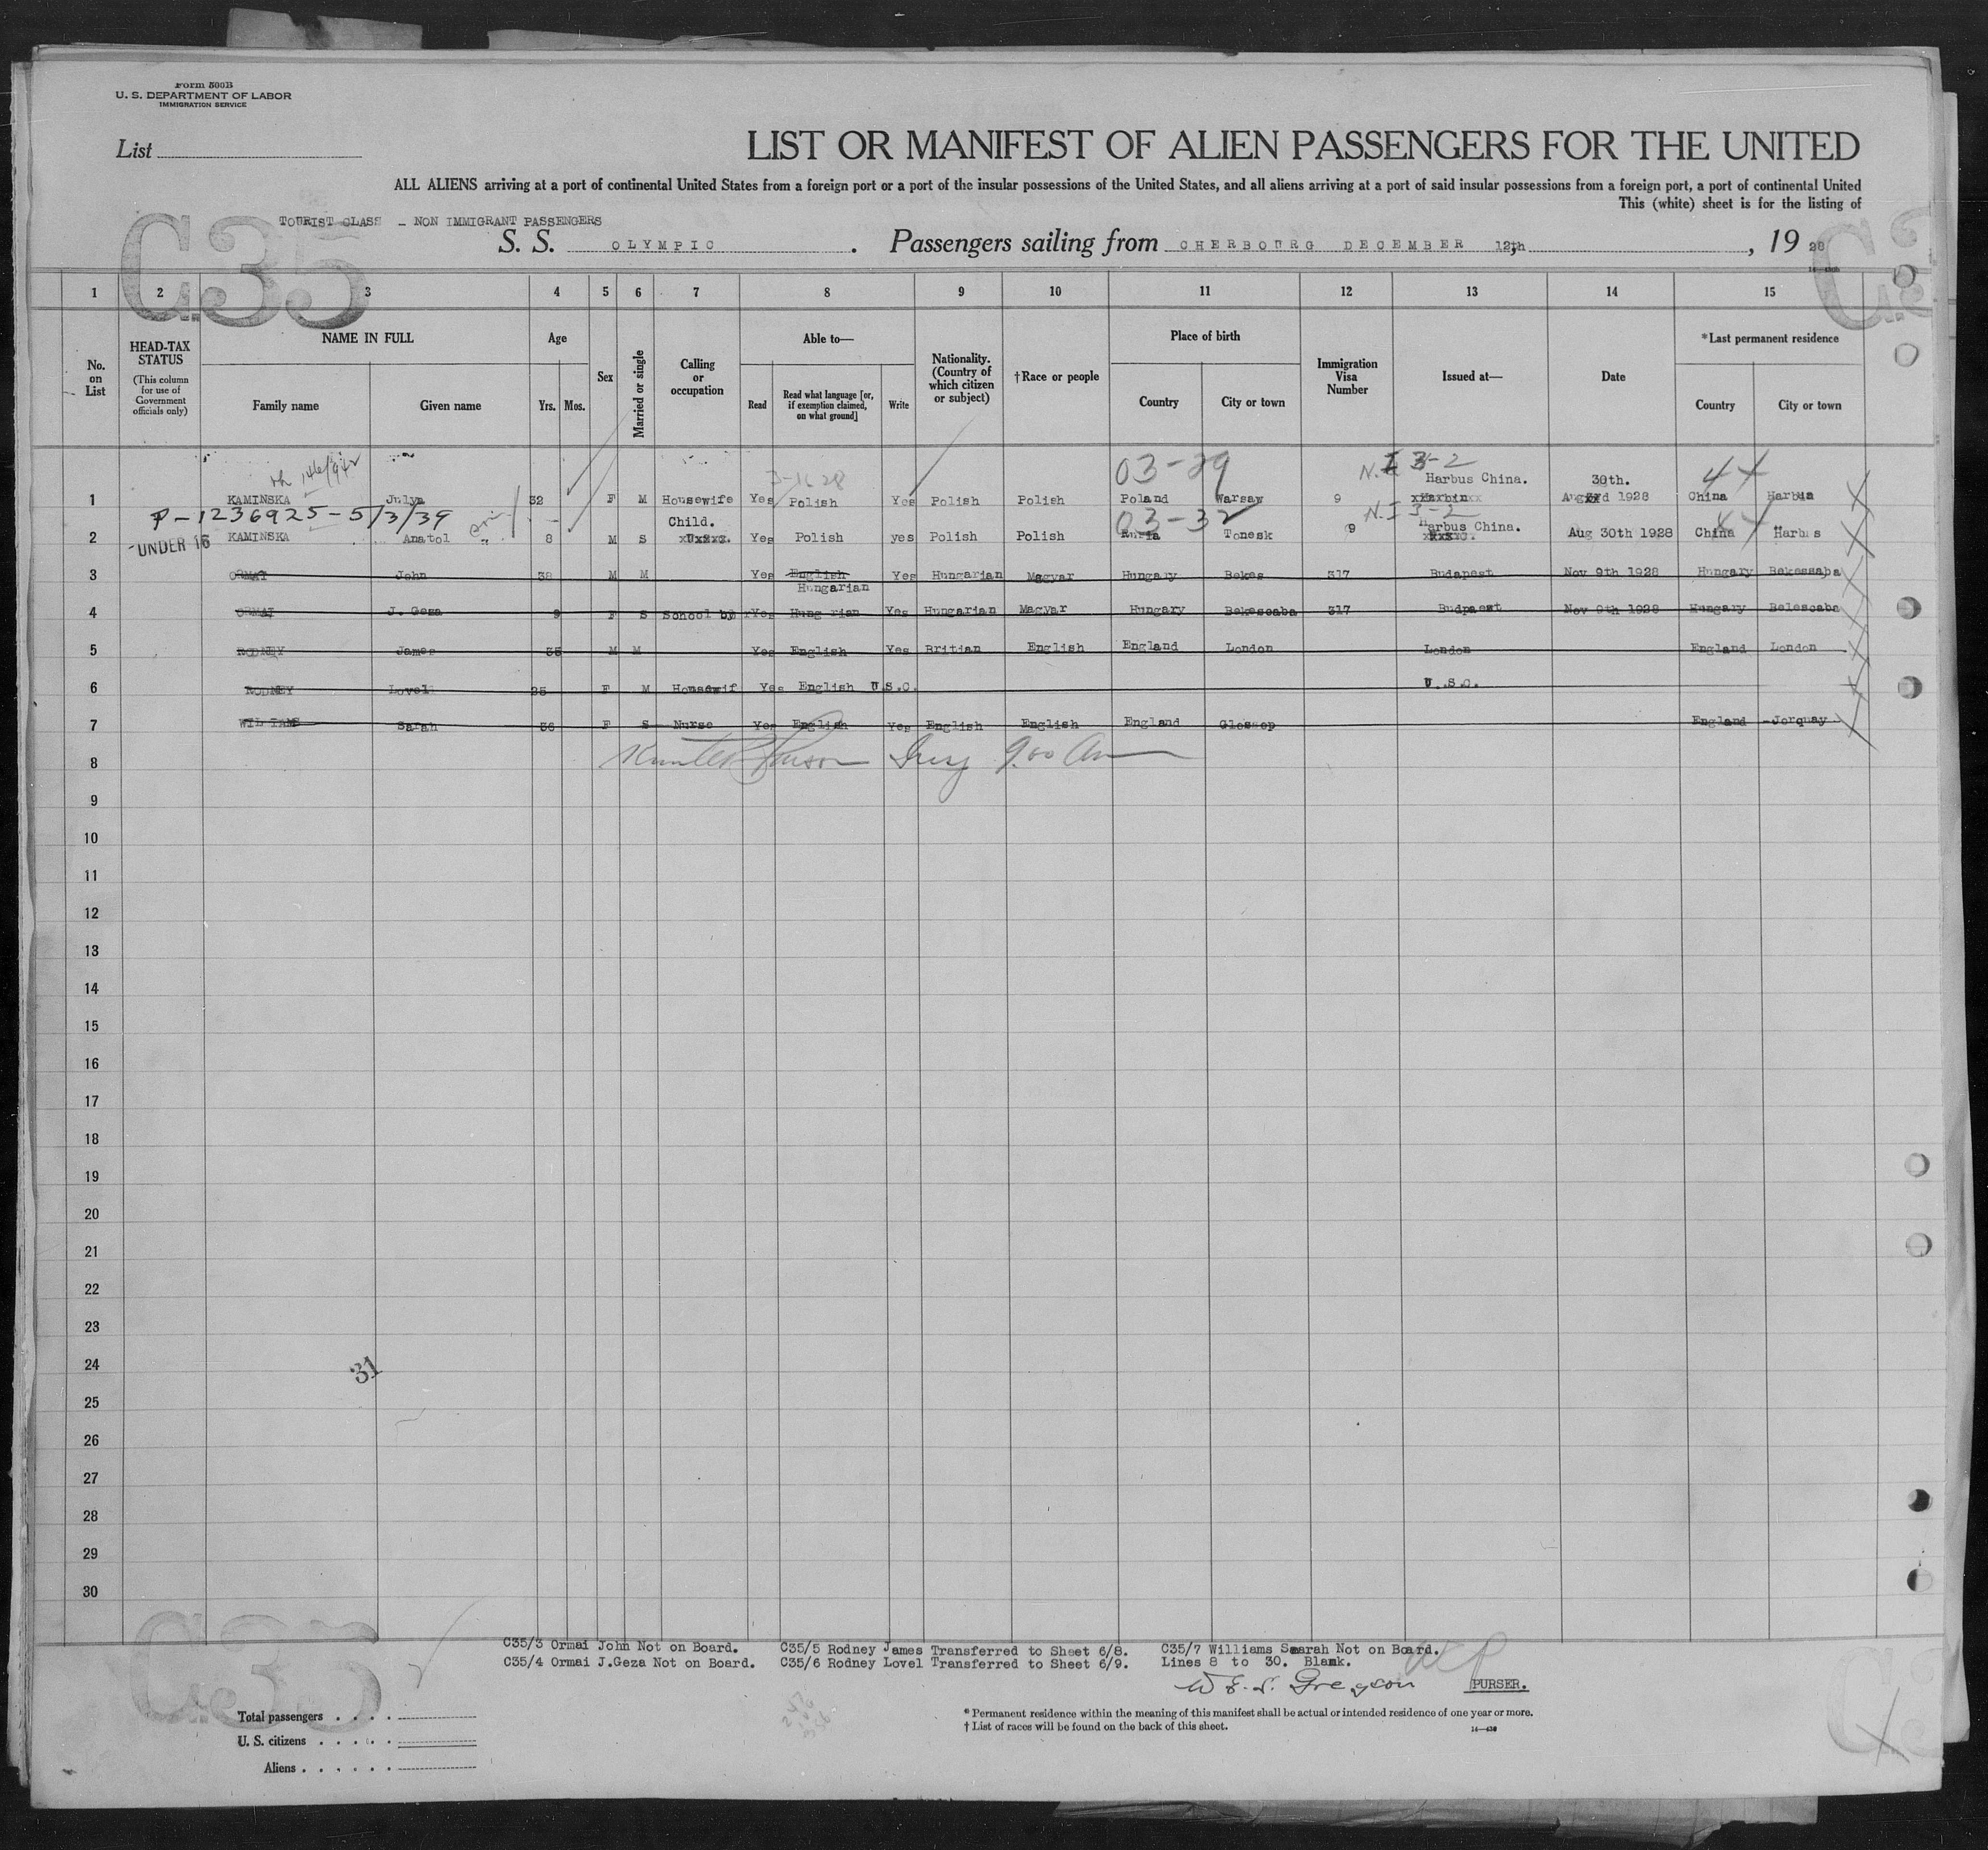 Form 500B
U. S. DEPARTMENT OF LABOR
IMMIGRATION SERVICE
List
LIST OR MANIFEST OF ALIEN PASSENGERS FOR THE UNITED
ALL ALIENS arriving at a port of continental United States from a foreign port or a port of the insular possessions of the United States, and all aliens arriving at a port of said insular possessions from a foreign port, a port of continental United
This (white) sheet is for the listing of
TOURIST CLASS - NON IMMIGRANT PASSENGERS
C35
S. S. OLYMPIC. Passengers sailing from CHERBOURG DECEMBER 12th, 1928
1 2 3 4 5 6 7 8 9 10 11 12 13 14 15
No. on List
HEAD-TAX STATUS (This column for use of Government officials only)
NAME IN FULL
Family name Given name
Age
Yrs. Mos.
Sex
Married or single
Calling or occupation
Able to—
Read Read what language [or, if exemption claimed, on what ground] Write
Nationality. (Country of which citizen or subject)
†Race or people
Place of birth
Country City or town
Immigration Visa Number
Issued at—
Date
*Last permanent residence
Country City or town
03-29 N.I 3-2 44
3-1628
1 KAMINSKA Julya 32 F M Housewife Yes Polish Yes Polish Polish Poland Warsaw 9 Harbus China. Aug 30th. 1928 China Harbin
P-1236925-5/3/39
03-32 N.I 3-2
2 UNDER 16 KAMINSKA Anatol 8 M S Child. Yes Polish yes Polish Polish Rusia Tonesk 9 Harbus China. Aug 30th 1928 China Harbus
3 ORMAI John 38 M M Yes English Hungarian Yes Hungarian Magyar Hungary Bekes 317 Budapest Nov 9th 1928 Hungary Bekessaba
4 ORMAI J. Geza 9 F S School by Yes Hung rian Yes Hungarian Magyar Hungary Bekescaba 317 Budpaest Nov 9th 1928 Hungary Belescaba
5 RODNEY James 35 M M Yes English Yes Britian English England London London England London
6 RODNEY Lovel 25 F M Housewif Yes English U.S.C. U.S.C.
7 WIL IAMS Sarah 36 F S Nurse Yes English Yes English English England Glossop England Jorquay
8 9.00 Am
9
10
11
12
13
14
15
16
17
18
19
20
21
22
23
24
31
25
26
27
28
29
30
C35
C35/3 Ormai John Not on Board. C35/5 Rodney James Transferred to Sheet 6/8. C35/7 Williams Saarah Not on Board.
C35/4 Ormai J.Geza Not on Board. C35/6 Rodney Lovel Transferred to Sheet 6/9. Lines 8 to 30. Blank.
PURSER.
Total passengers
U. S. citizens
Aliens
* Permanent residence within the meaning of this manifest shall be actual or intended residence of one year or more.
† List of races will be found on the back of this sheet.
14—430